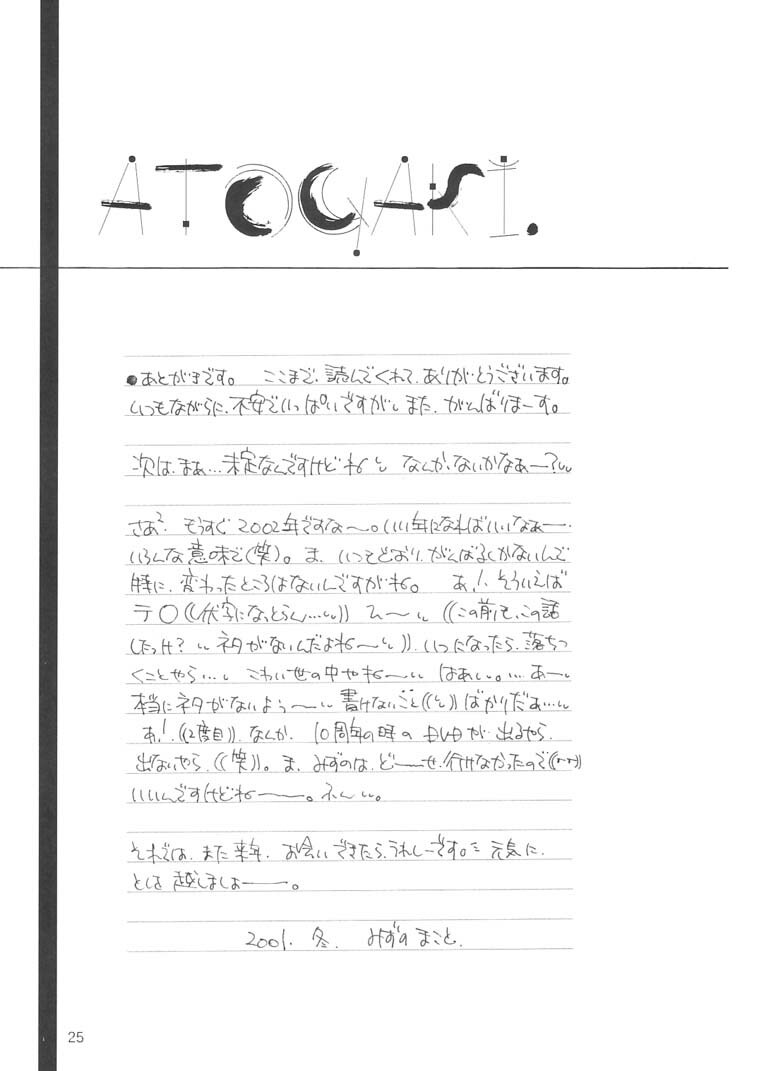 ATOGAKI.
●あとがきです。 ここまで、読んでくれて、ありがとうございます。
いつもながらに、不安でいっぱいですが、また、がんばりまーす。
次は、まぁ…未定なんですけどね なんか、ないかなぁー?
さあ². もうすぐ2002年ですな〜。いい年になればいいなぁー.
いろんな意味で(笑)。ま、いつもどおり、がんばるしかないんで
特に、変わったところはないんですがね。 あ!、そういえば
テ○((伏字になっとらん…)) ひ〜 ((この前も、この話
したっけ? ネタがないんだよね〜)).いつになったら、落ちつ
くことやら… こわい世の中やね〜 はあ。…あー
本当にネタがないよぅ〜 書けないこと(())ばかりだぁ…
あ!((2度目)).なんか、10周年の時の が、出るやら、
出ないやら.((笑))。ま、みずのは、どーせ、行けなかったので((--))
いいんですけどねー。ふん。
それでは、また来年、お会いできたら、うれしーです。 元気に、
とし越しましょー。
2001. 冬. みずの まこと.
25